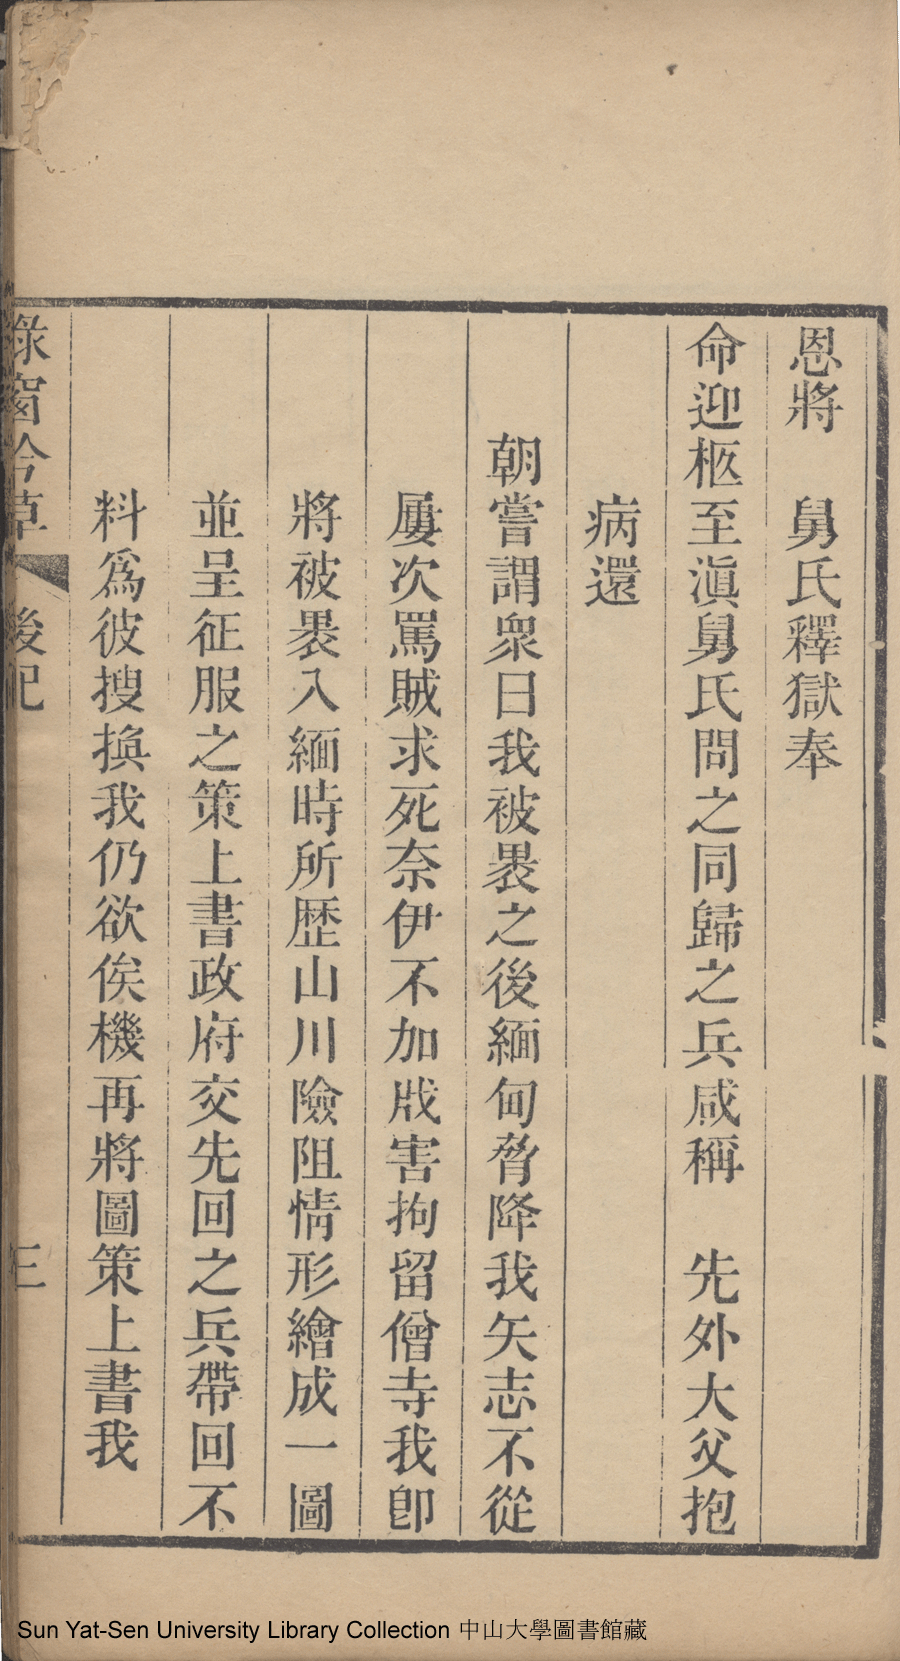 恩將　舅氏釋獄奉
命迎柩至滇舅氏問之同歸之兵咸稱　先外大父抱
病還
朝嘗謂衆曰我被褁之後緬甸脅降我矢志不從
屢次罵賊求死奈伊不加戕害拘留僧寺我卽
將被褁入緬時所歷山川險阻情形繪成一圖
並呈征服之策上書政府交先回之兵帶回不
料爲彼搜換我仍欲俟機再將圖策上書我
綠窗吟草　後記　三
Sun Yat-Sen University Library Collection 中山大學圖書館藏